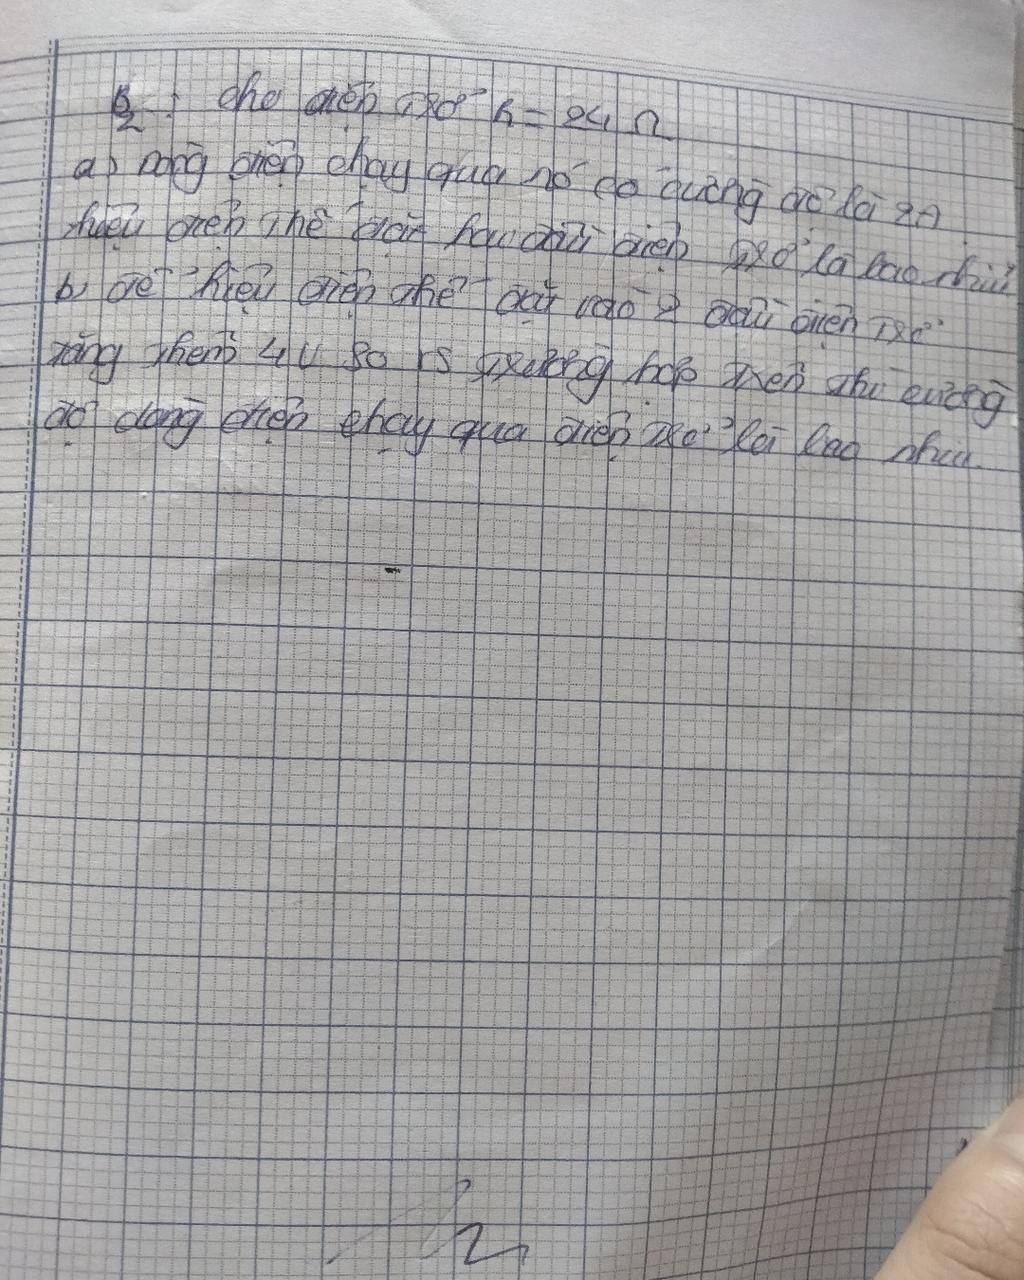 B2: cho điện trở R = 24 Ω
a) dòng điện chạy qua nó có cường độ là 2A
hiệu điện thế đặt hai đầu điện trở là bao nhiu
b, để hiệu điện thế đặt vào 2 đầu điện trở
tăng thêm 4V so vs trường hợp trên thì cường
độ dòng điện chạy qua điện trở là bao nhiu